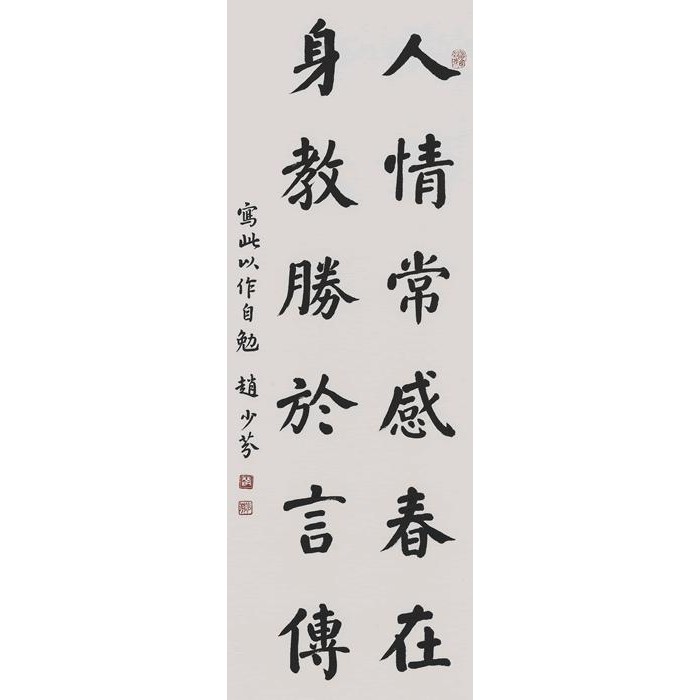 人情常感春在
身教勝於言傳
寫此以作自勉 趙少芬